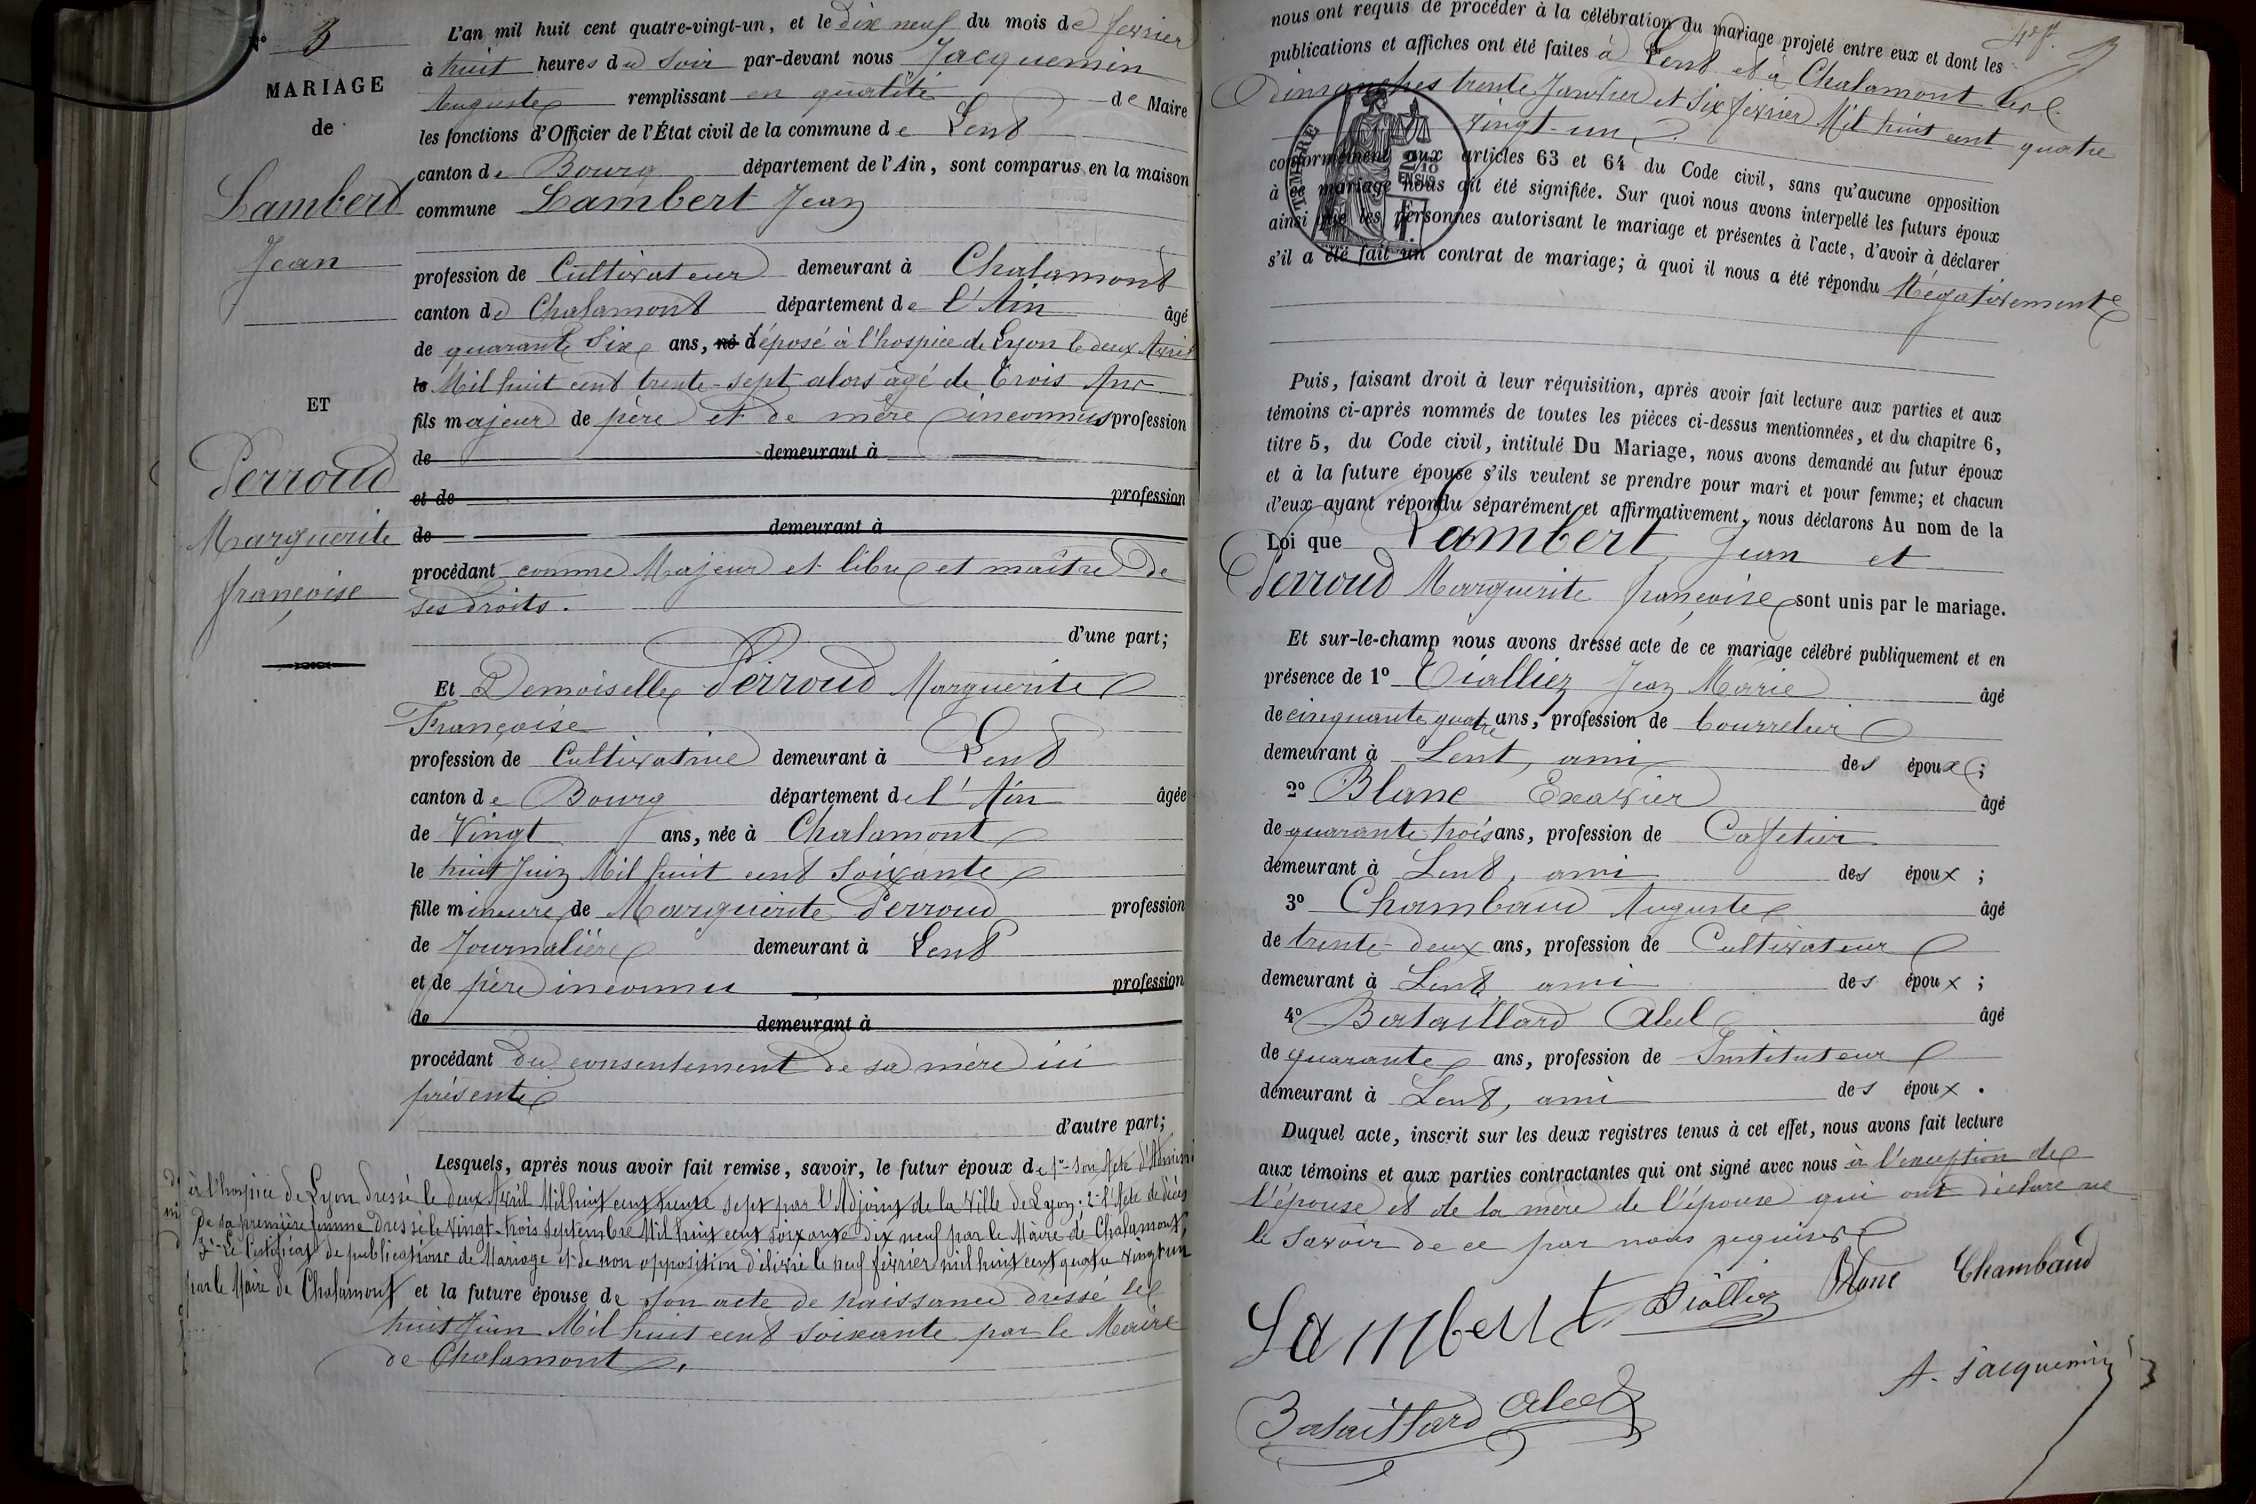 N° 3
MARIAGE
de
Lambert
Jean
ET
Perroud
Marguerite
françoise
L'an mil huit cent quatre-vingt-un, et le dix neuf du mois de fevrier
à huit heures du soir par-devant nous Jacquemin
Auguste remplissant en qualité de Maire
les fonctions d'Officier de l'État civil de la commune de Lent
canton de Bourg département de l'Ain, sont comparus en la maison
commune Lambert Jean
profession de Cultivateur demeurant à Chalamont
canton de Chalamont département de l'Ain âgé
de quarante six ans, né déposé à l'hospice de Lyon le deux Avril
le Mil huit cent trente-sept alors âgé de Trois Ans
fils majeur de père et de mère inconnus profession
de demeurant à
et de profession
de demeurant à
procédant comme Majeur et libre et maître de
ses droits.
d'une part;
Et Demoiselle Perroud Marguerite
Françoise
profession de Cultivatrice demeurant à Lent
canton de Bourg département de l'Ain âgée
de Vingt ans, née à Chalamont
le huit Juin Mil huit cent soixante
fille mineure de Marguerite Perroud profession
de Journalière demeurant à Lent
et de père inconnu profession
de demeurant à
procédant du consentement de sa mère ici
présente
d'autre part;
Lesquels, après nous avoir fait remise, savoir, le futur époux de 1° Son Acte d'Admis
à l'hospice de Lyon dressé le deux Avril Mil huit cent trente sept par l'Adjoint de la ville de Lyon; 2° l'Acte de décès
de sa première femme dressé le vingt-trois septembre Mil huit cent soixante dix neuf par le Maire de Chalamont;
3° Le Certificat de publications de Mariage et de non opposition délivré le neuf février mil huit cent quatre vingt un
par le Maire de Chalamont et la future épouse de son acte de naissance dressé le
huit Juin Mil huit cent soixante par le Maire
de Chalamont.
nous ont requis de procéder à la célébration du mariage projeté entre eux et dont les
publications et affiches ont été faites à Lent et à Chalamont les
Dimanches trente Janvier et Six février Mil huit cent quatre
vingt-un.
TIMBRE
2/10
EN SUS
conformément aux articles 63 et 64 du Code civil, sans qu'aucune opposition
à ce mariage nous ait été signifiée. Sur quoi nous avons interpellé les futurs époux
ainsi que les personnes autorisant le mariage et présentes à l'acte, d'avoir à déclarer
s'il a été fait un contrat de mariage; à quoi il nous a été répondu Négativement
Puis, faisant droit à leur réquisition, après avoir fait lecture aux parties et aux
témoins ci-après nommés de toutes les pièces ci-dessus mentionnées, et du chapitre 6,
titre 5, du Code civil, intitulé Du Mariage, nous avons demandé au futur époux
et à la future épouse s'ils veulent se prendre pour mari et pour femme; et chacun
d'eux ayant répondu séparément et affirmativement, nous déclarons Au nom de la
Loi que Lambert Jean et
Perroud Marguerite françoise sont unis par le mariage.
Et sur-le-champ nous avons dressé acte de ce mariage célébré publiquement et en
présence de 1° Viallier Jean Marie âgé
de cinquante quatre ans, profession de bourrelier
demeurant à Lent, ami des époux;
2° Blanc Exavier âgé
de quarante-trois ans, profession de Cafetier
demeurant à Lent, ami des époux;
3° Chambaud Auguste âgé
de trente-deux ans, profession de Cultivateur
demeurant à Lent, ami des époux;
4° Bataillard Abel âgé
de quarante ans, profession de Instituteur
demeurant à Lent, ami des époux.
Duquel acte, inscrit sur les deux registres tenus à cet effet, nous avons fait lecture
aux témoins et aux parties contractantes qui ont signé avec nous à l'exception de
l'épouse et de la mère de l'épouse qui ont déclaré ne
le savoir de ce par nous requises
Lambert Viallier Blanc Chambaud
A. Jacquemin
Bataillard Abel